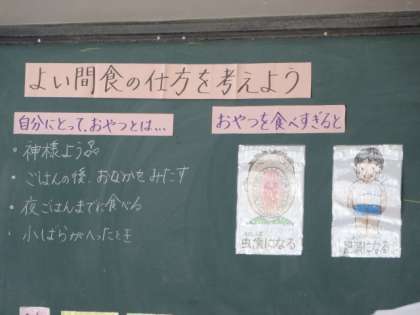 よい間食の仕方を考えよう
自分にとって、おやつとは…
・神様よう品
・ごはんの後、おなかをみたす
・夜ごはんまでに食べる
・小ばらがへったとき
おやつを食べすぎると
虫歯になる
肥満になる